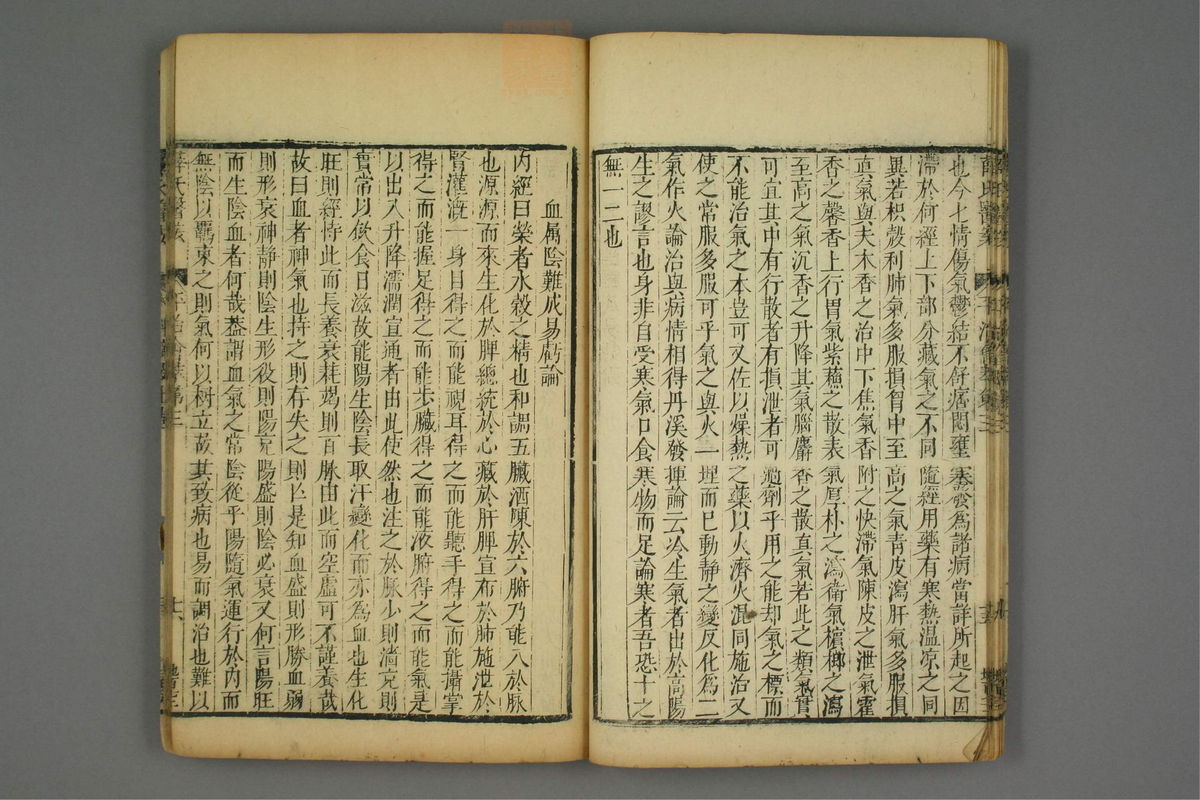 也今七情傷氣鬱結不舒痞悶壅塞發為諸病當詳所起之因
滯於何經上下部分藏氣之不同隨經用藥有寒熱温凉之同
異若枳殼利肺氣多服損胷中至高之氣青皮瀉肝氣多服損
真氣與夫木香之治中下焦氣香附之快滯氣陳皮之泄氣藿
香之馨香上行胃氣紫蘇之散表氣厚朴之瀉衛氣檳榔之瀉
至高之氣沉香之升降其氣腦麝香之散真氣若此之類氣實
可宜其中有行散者有損泄者可過劑乎用之能却氣之標而
不能治氣之本豈可又佐以燥熱之藥以火濟火混同施治又
使之常服多服可乎氣之與火一理而已動靜之變反化為二
氣作火論治與病情相得丹溪發揮論云冷生氣者出於高陽
生之謬言也身非自受寒氣口食寒物而足論寒者吾恐十之
無一二也
血屬陰難成易虧論
內經曰榮者水穀之精也和調五臟洒陳於六腑乃能入於脉
也源源而來生化於脾總統於心藏於肝脾宣布於肺施泄於
腎灌溉一身目得之而能視耳得之而能聽手得之而能攝掌
得之而能握足得之而能步臟得之而能液腑得之而能氣是
以出入升降濡潤宣通者由此使然也注之於脉少則濇充則
實常以飲食日滋故能陽生陰長取汗變化而亦為血也生化
旺則經恃此而長養衰耗竭則百脉由此而空虛可不謹養哉
故曰血者神氣也持之則有失之則亾是知血盛則形勝血弱
則形衰神靜則陰生形役則陽亢陽盛則陰必衰又何言陽旺
而生陰血者何哉葢謂血氣之常陰從乎陽隨氣運行於內而
無陰以羈束之則氣何以树立故其致病也易而調治也難以